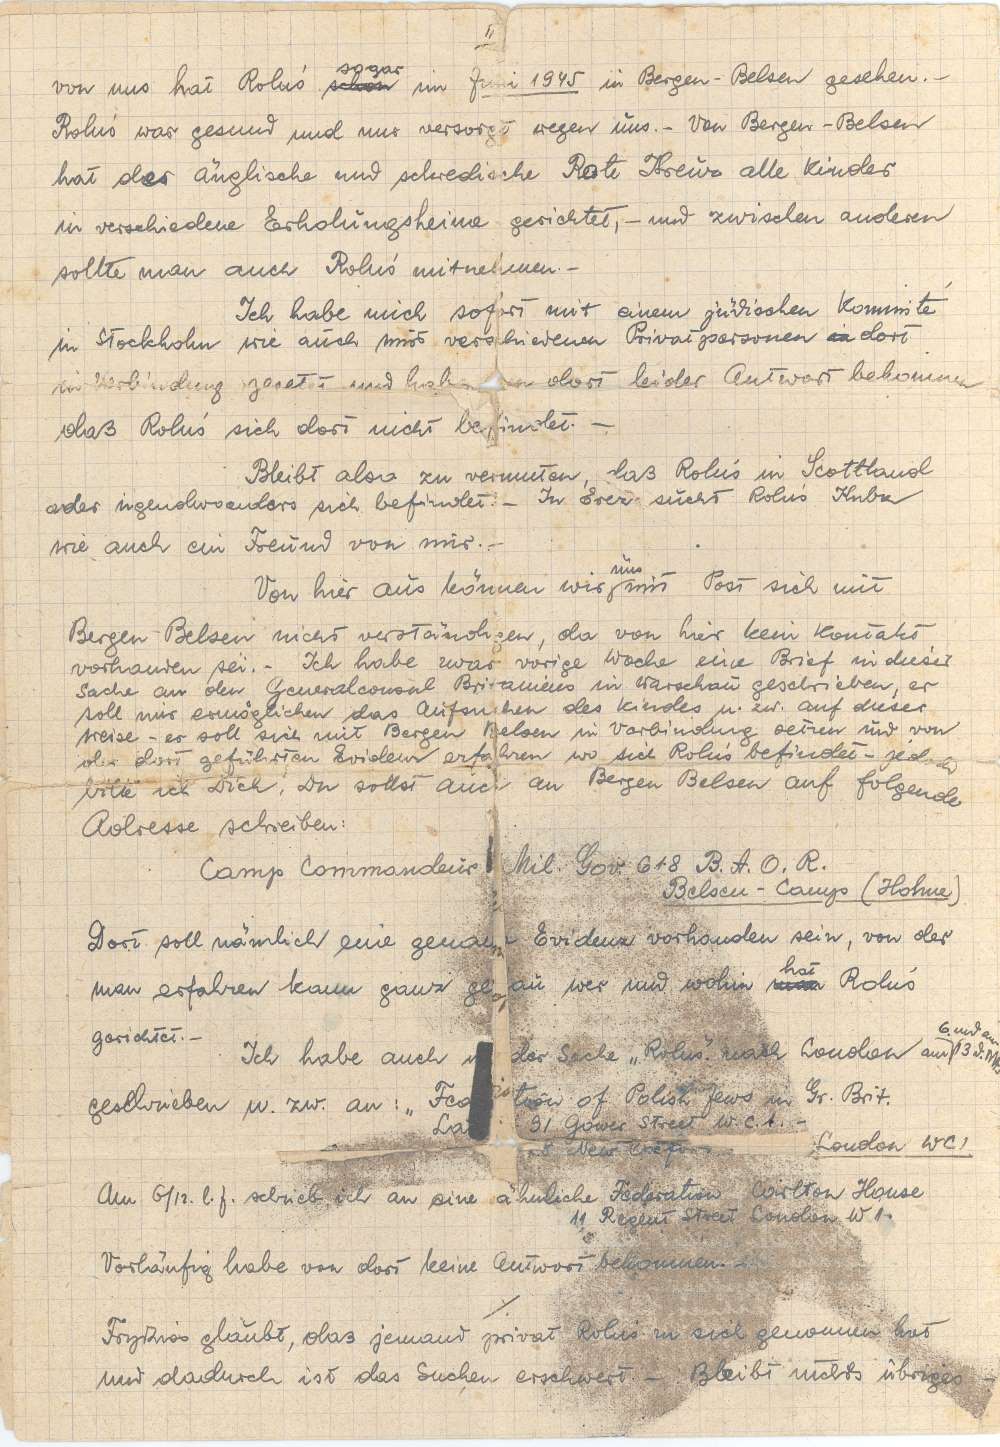 II
von uns hat Roluś sogar im Juni 1945 in Bergen-Belsen gesehen.-
Roluś war gesund und nur versorgt wegen üns.- Von Bergen-Belsen
hat der änglische und schwedische Rote Kreuz alle Kinder
in verschiedene Erholüngsheime gerichtet, - und zwischen anderen
sollte man auch Roluś mitnehmen.-
Ich habe mich sofort mit einem jüdischen Kommite
in Stockholm wie aüch mit verschiedenen Privatpersonen dort
in Verbindung gesetzt und habe von dort leider Antwort bekommen
daß Roluś sich dort nicht befindet. -
Bleibt also zu vermuten, daß Roluś in Scottland
oder irgendwoanders sich befindet. - In Erez sücht Roluś Kuba
wie auch ein Freünd von mir.-
Von hier aüs können wir üns mit Post sich mit
Bergen Belsen nicht verständigen, da von hier kein Kontakt
vorhanden sei.- Ich habe zwar vorige Woche eine Brief in dieser
Sache an den Generalconsul Britaniens in Warschaü geschrieben, er
soll mir ermöglichen das Aufsuchen des Kindes u. zw. auf dieser
Weise - er soll sich mit Bergen Belsen in Verbindung setzen und von
der dort geführten Evidenz erfahren wo sich Roluś befindet - jedoch
bitte ich Dich, Du sollst auch an Bergen Belsen auf folgende
Adresse schreiben:
Camp Commandeur Mil. Gov. 618 B.A.O.R.
Belsen - Camp (Hohne)
Dort soll nämlich eine genaue Evidenz vorhanden sein, von der
man erfahren kann ganz genau wer und wohin hat Roluś
gerichtet.-
Ich habe auch in der Sache "Roluś" nach London am 13
6 und am
geschrieben u. zw. an: "Federation of Polish Jews in Gr. Brit.
91 Gower Street W.C.1. -
London WC1
Am 6/12. l.J. schrieb ich an eine ähnliche Föderation Carlton House
11 Regent Street London W1.
Vorläüfig habe von dort keine Antwort bekommen.
glaübt, daß jemand privat Roluś zu sich genommen hat
und dadurch ist das Suchen erschwert. - Bleibt nichts übriges -